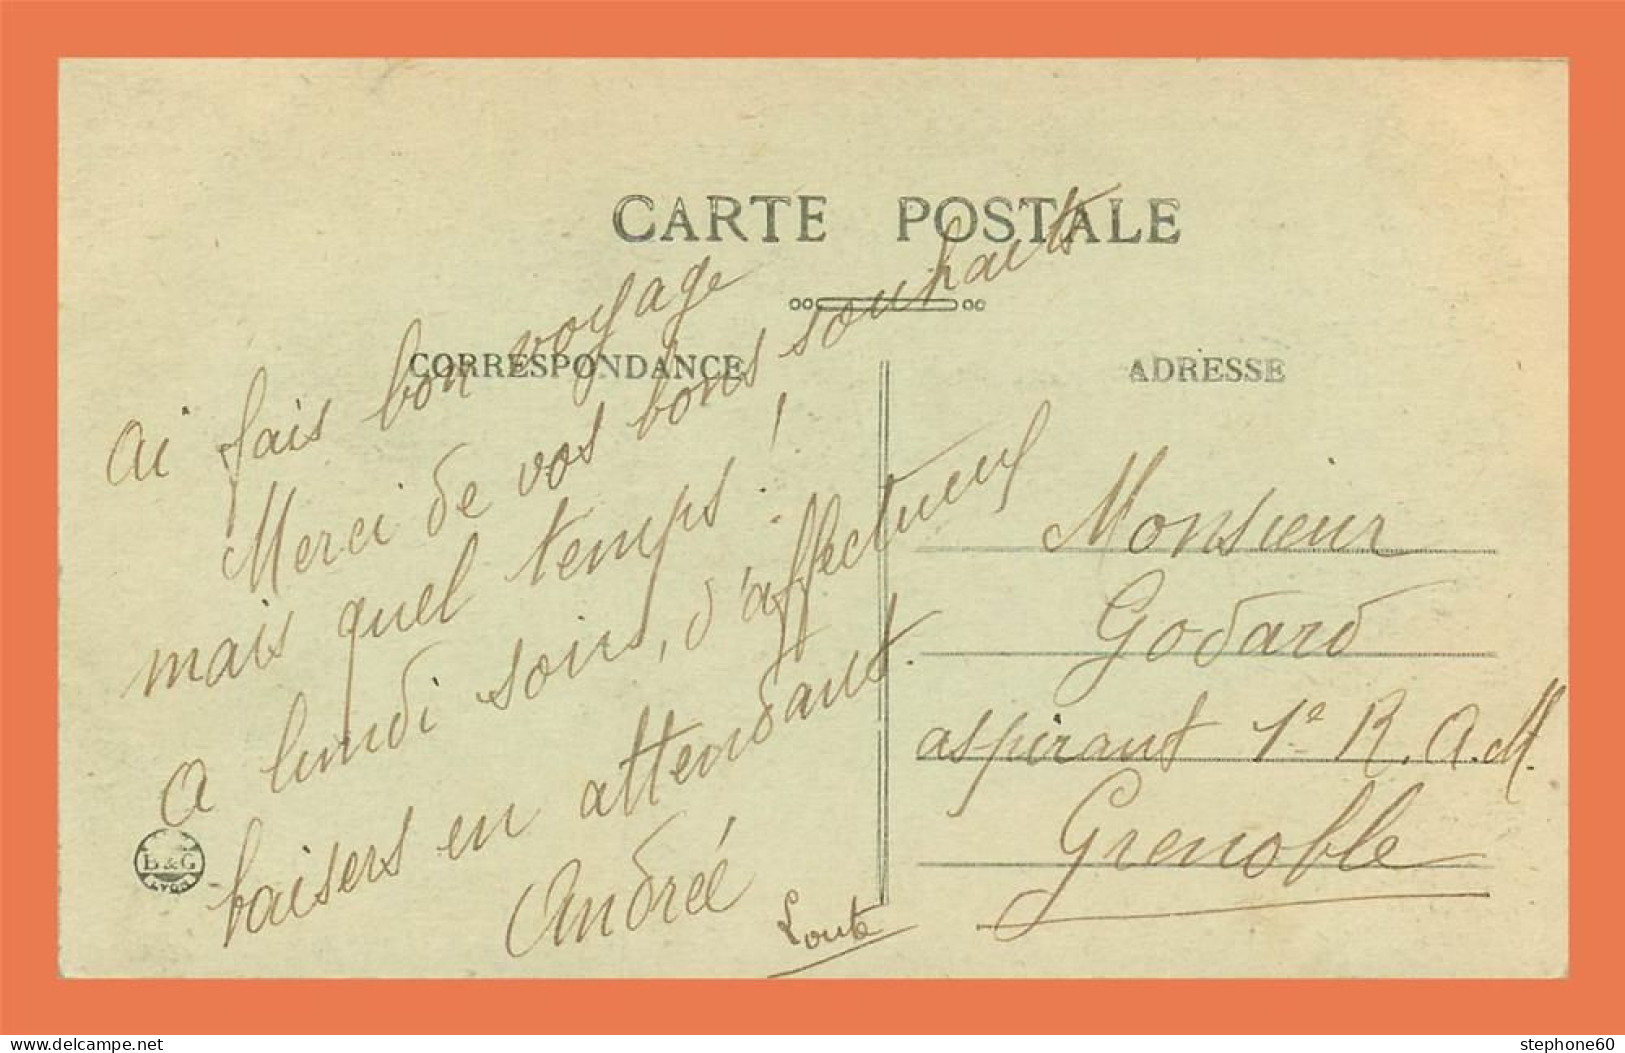 CARTE POSTALE
CORRESPONDANCE
ADRESSE
ai fais bon voyage
Merci de vos bons souhaits
mais quel temps !
A lundi soir, d'affectueux
baisers en attendant.
Andrée
Loute
Monsieur
Godard
aspirant 1e R.A.M.
Grenoble
B&G
LYON
delcampe.net
stephone60